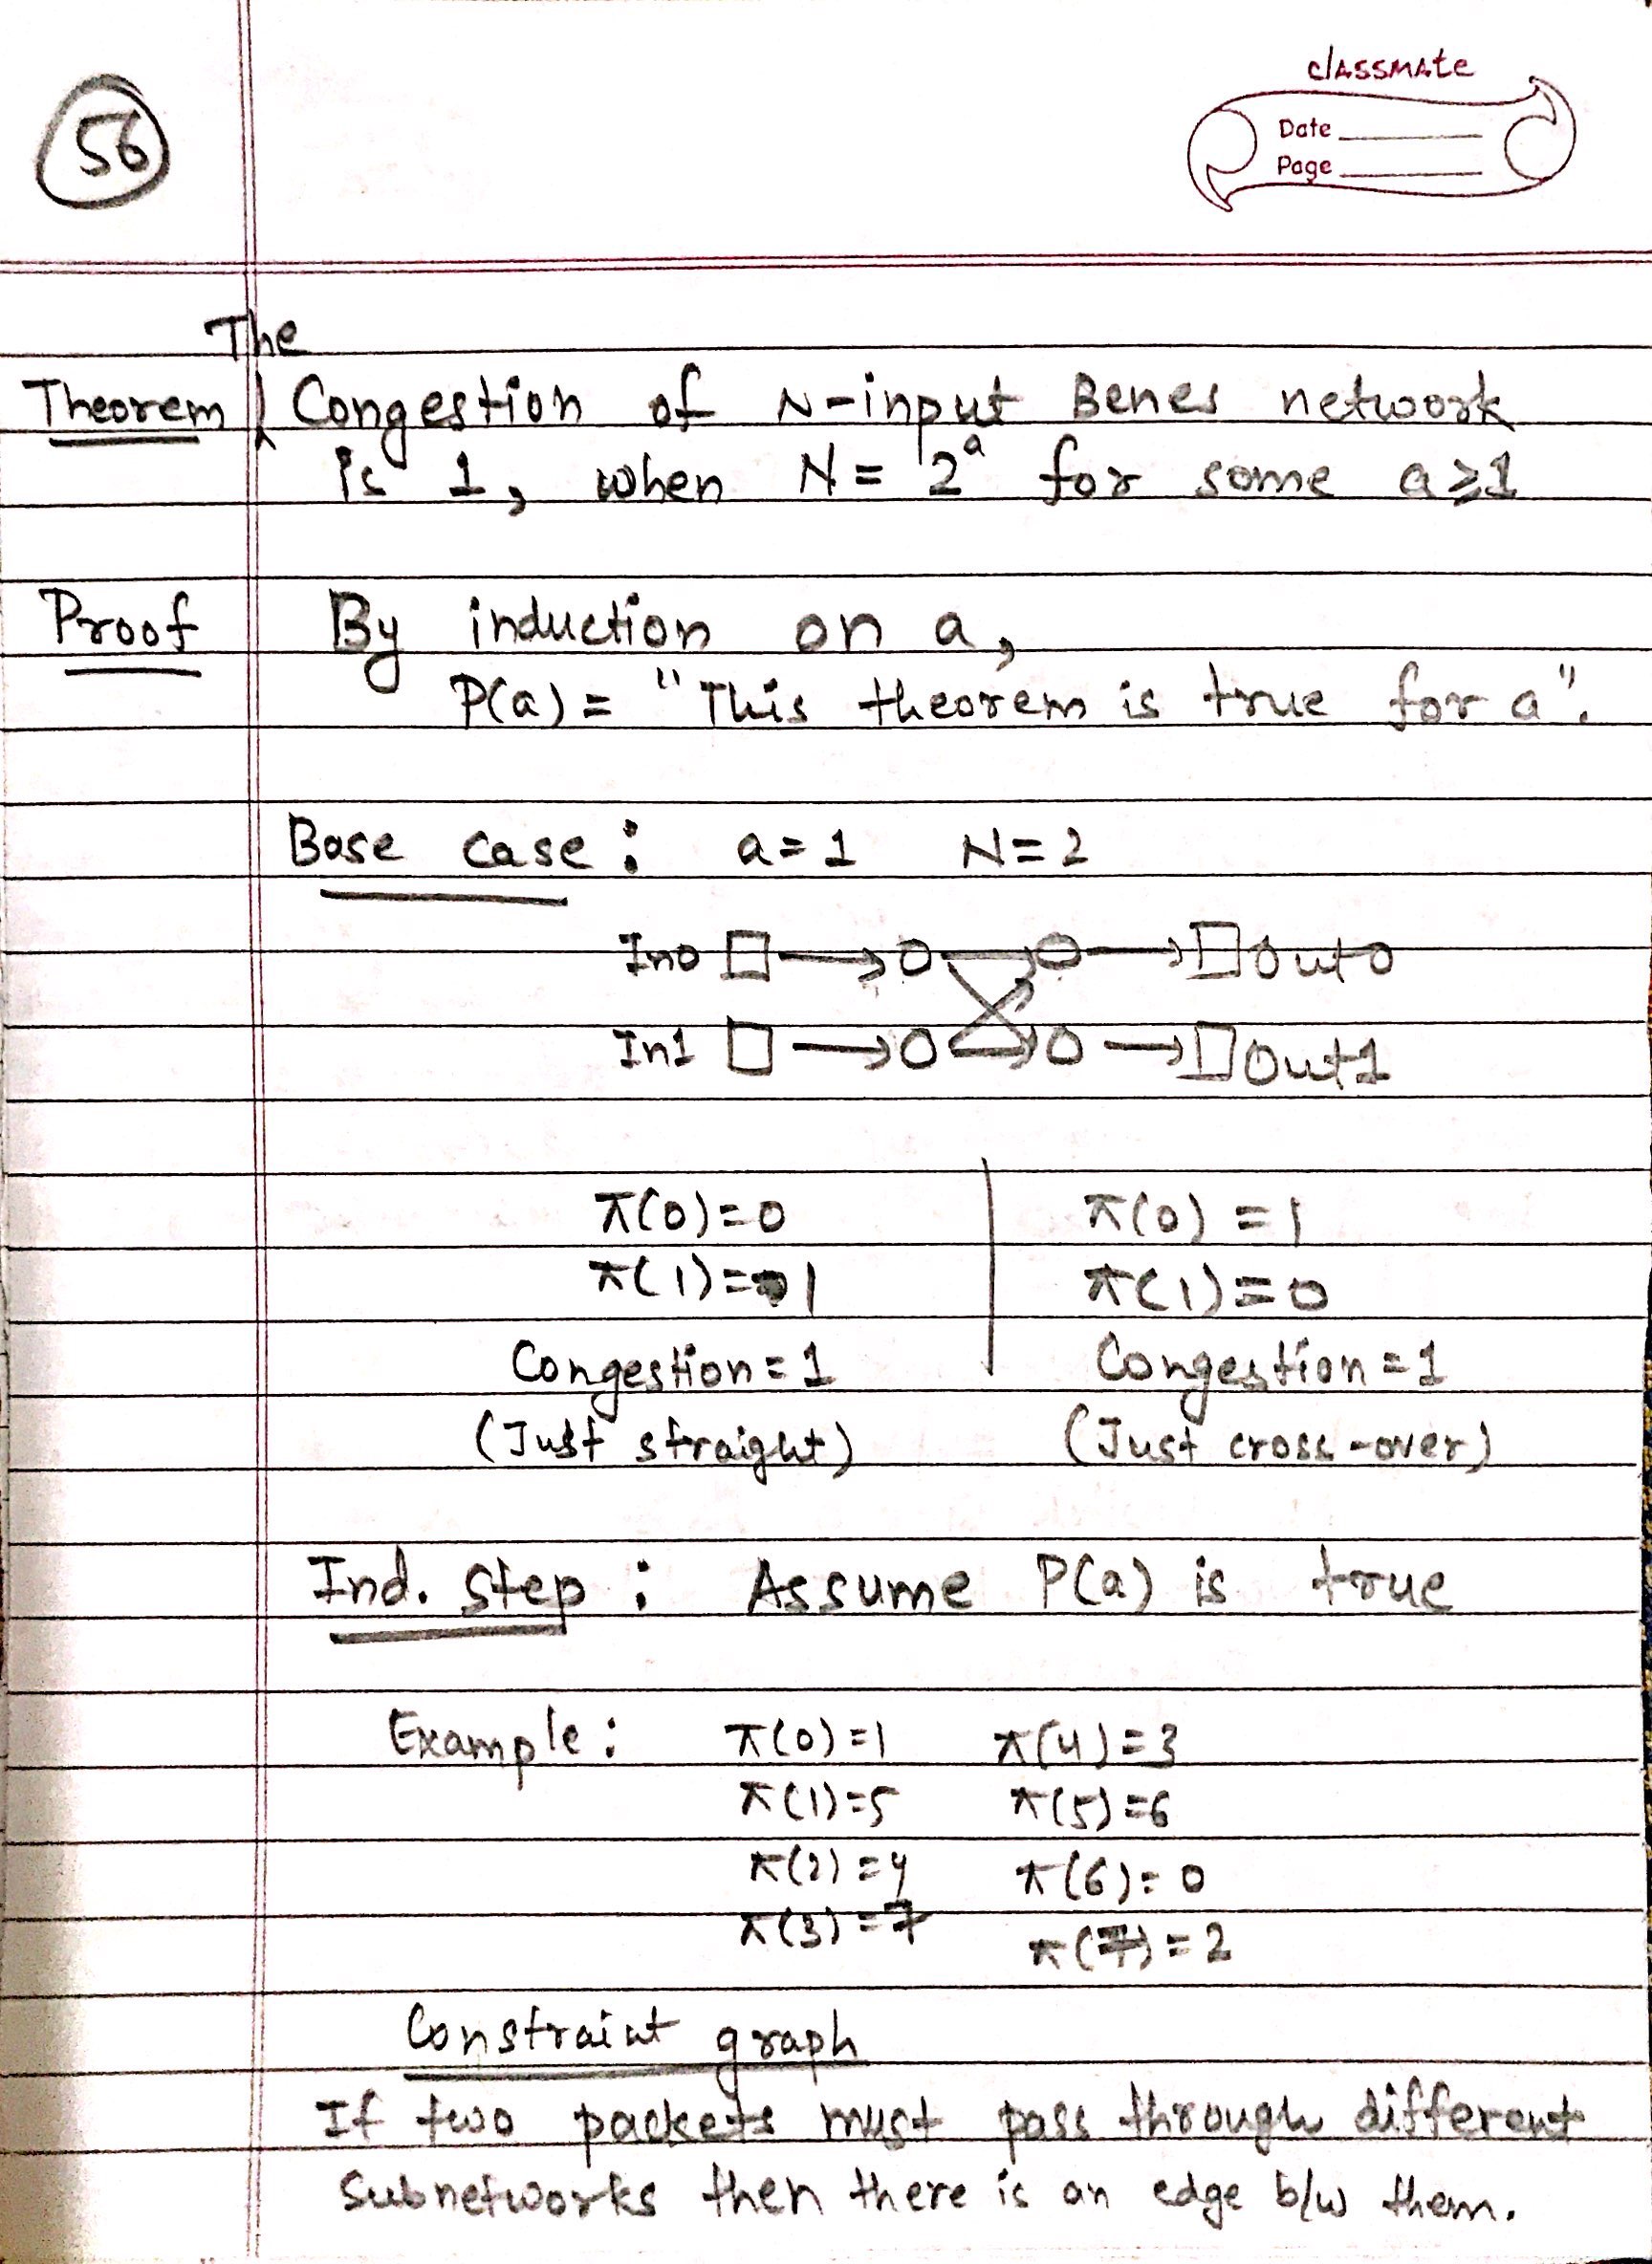 56
classmate
Date
Page
The
Theorem Congestion of N-input Benes network
is 1, when N = 2^a for some a≥1
Proof By induction on a,
P(a) = "This theorem is true for a".
Base case : a=1 N=2
In0 Out0
In1 Out1
π(0)=0 π(0)=1
π(1)=1 π(1)=0
Congestion=1 Congestion=1
(Just straight) (Just cross-over)
Ind. Step : Assume P(a) is true
Example : π(0)=1 π(4)=3
π(1)=5 π(5)=6
π(2)=4 π(6)=0
π(3)=7 π(7)=2
Constraint graph
If two packets must pass through different
subnetworks then there is an edge b/w them.